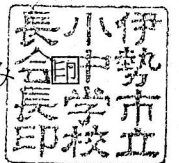 伊勢市立
小中学校
長会長印
印